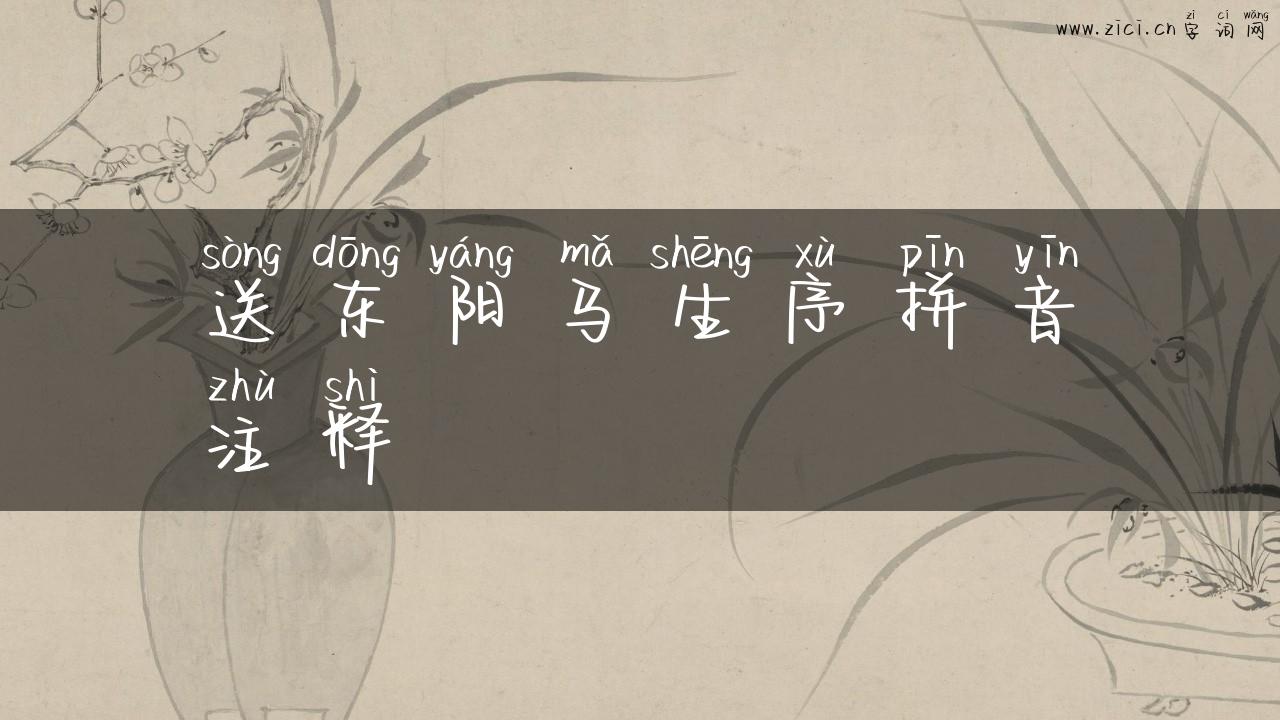 zì cí wǎng
www.zici.cn 字词网
sòng dōng yáng mǎ shēng xù pīn yīn
送东阳马生序拼音
zhù shì
注释